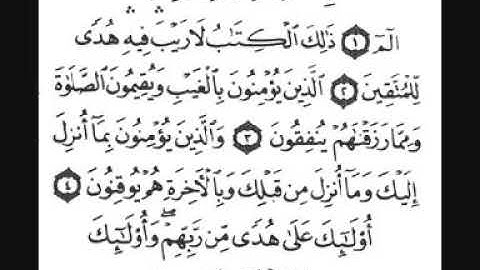 الٓمٓ ١ ذَٰلِكَ ٱلْكِتَٰبُ لَا رَيْبَۛ فِيهِۛ هُدًى
لِّلْمُتَّقِينَ ٢ ٱلَّذِينَ يُؤْمِنُونَ بِٱلْغَيْبِ وَيُقِيمُونَ ٱلصَّلَوٰةَ
وَمِمَّا رَزَقْنَٰهُمْ يُنفِقُونَ ٣ وَٱلَّذِينَ يُؤْمِنُونَ بِمَآ أُنزِلَ
إِلَيْكَ وَمَآ أُنزِلَ مِن قَبْلِكَ وَبِٱلْءَاخِرَةِ هُمْ يُوقِنُونَ ٤
أُو۟لَٰٓئِكَ عَلَىٰ هُدًى مِّن رَّبِّهِمْۖ وَأُو۟لَٰٓئِكَ